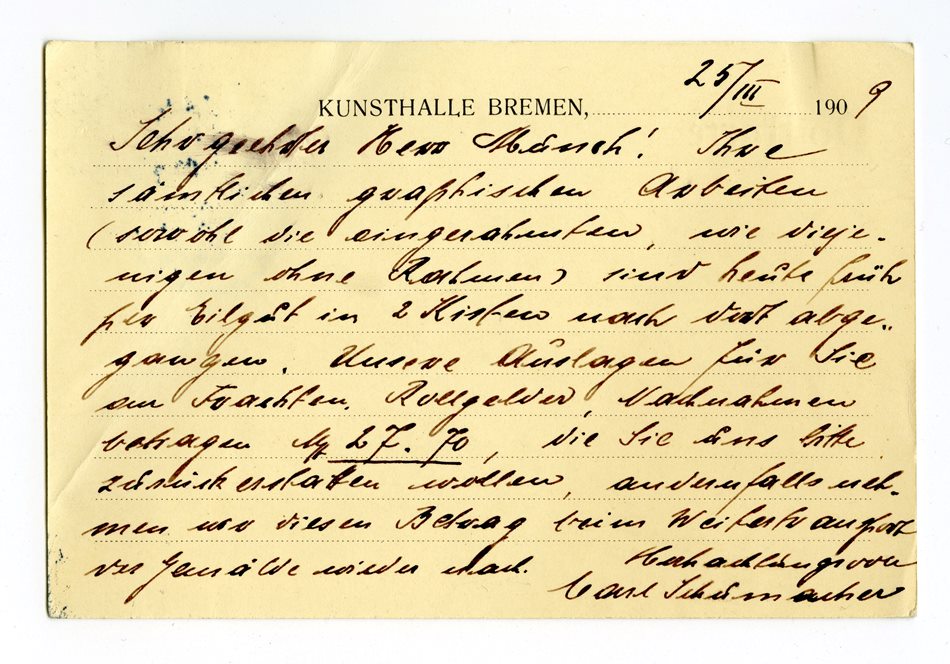 25/III
KUNSTHALLE BREMEN, 1909
Sehr geehrter Herr Munch! Ihre
sämtlichen graphischen Arbeiten
(sowohl die eingerahmten, wie dieje-
nigen ohne Rahmen) sind heute früh
per Eilgut in 2 Kisten nach dort abge-
gangen. Unsere Auslagen für Sie
an Frachten, Rollgelder, Nachnahmen
betragen M 27.70, die Sie uns bitte
zurückerstatten wollen, andernfalls neh-
men wir diesen Betrag beim Weitertransport
der Gemälde wieder nach. Hochachtungsvoll
Carl Schumacher